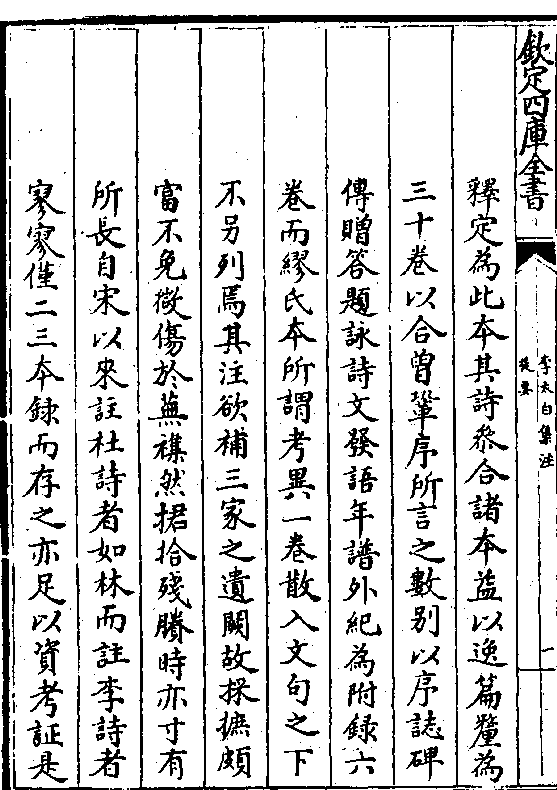 欽定四庫全書
李太白集注
提要
一
釋定為此本其詩叅合諸本益以逸篇釐為
三十卷以合曾鞏序所言之數别以序誌碑
傳贈答題詠詩文發語年譜外紀為附録六
卷而繆氏本所謂考異一卷散入文句之下
不另列焉其注欲補三家之遺闕故採摭頗
富不免㣲傷於蕪襍然捃拾殘賸時亦寸有
所長自宋以來註杜詩者如林而註李詩者
寥寥僅二三本録而存之亦足以資考証是